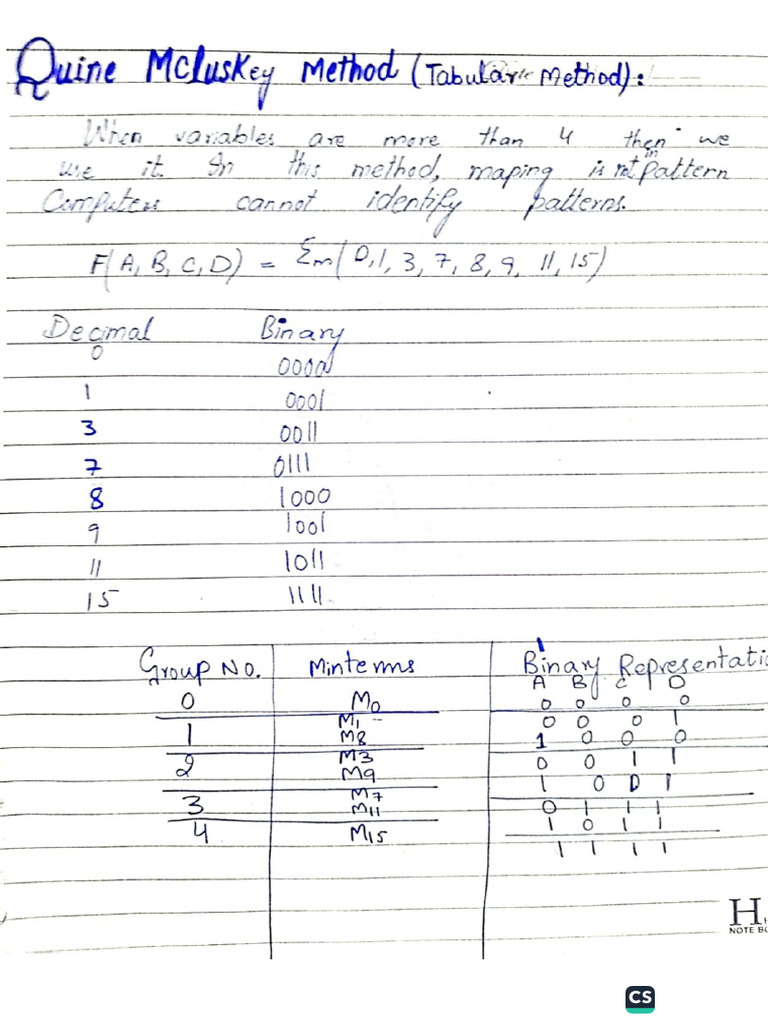 Quine McLuskey Method (Tabular Method):
When variables are more than 4 then we
use it. In this method, maping is not in Pattern
Computers cannot identify patterns.
F(A, B, C, D) = Σm(0,1, 3, 7, 8, 9, 11, 15)
Decimal Binary
0 0000
1 0001
3 0011
7 0111
8 1000
9 1001
11 1011
15 1111
Group No. Minterms Binary Representati
A B C D
0 M0 0 0 0 0
M1 0 0 0 1
1 M8 1 0 0 0
2 M3 0 0 1 1
M9 1 0 0 1
3 M7 0 1 1 1
M11 1 0 1 1
4 M15 1 1 1 1
H
NOTE BO
CS